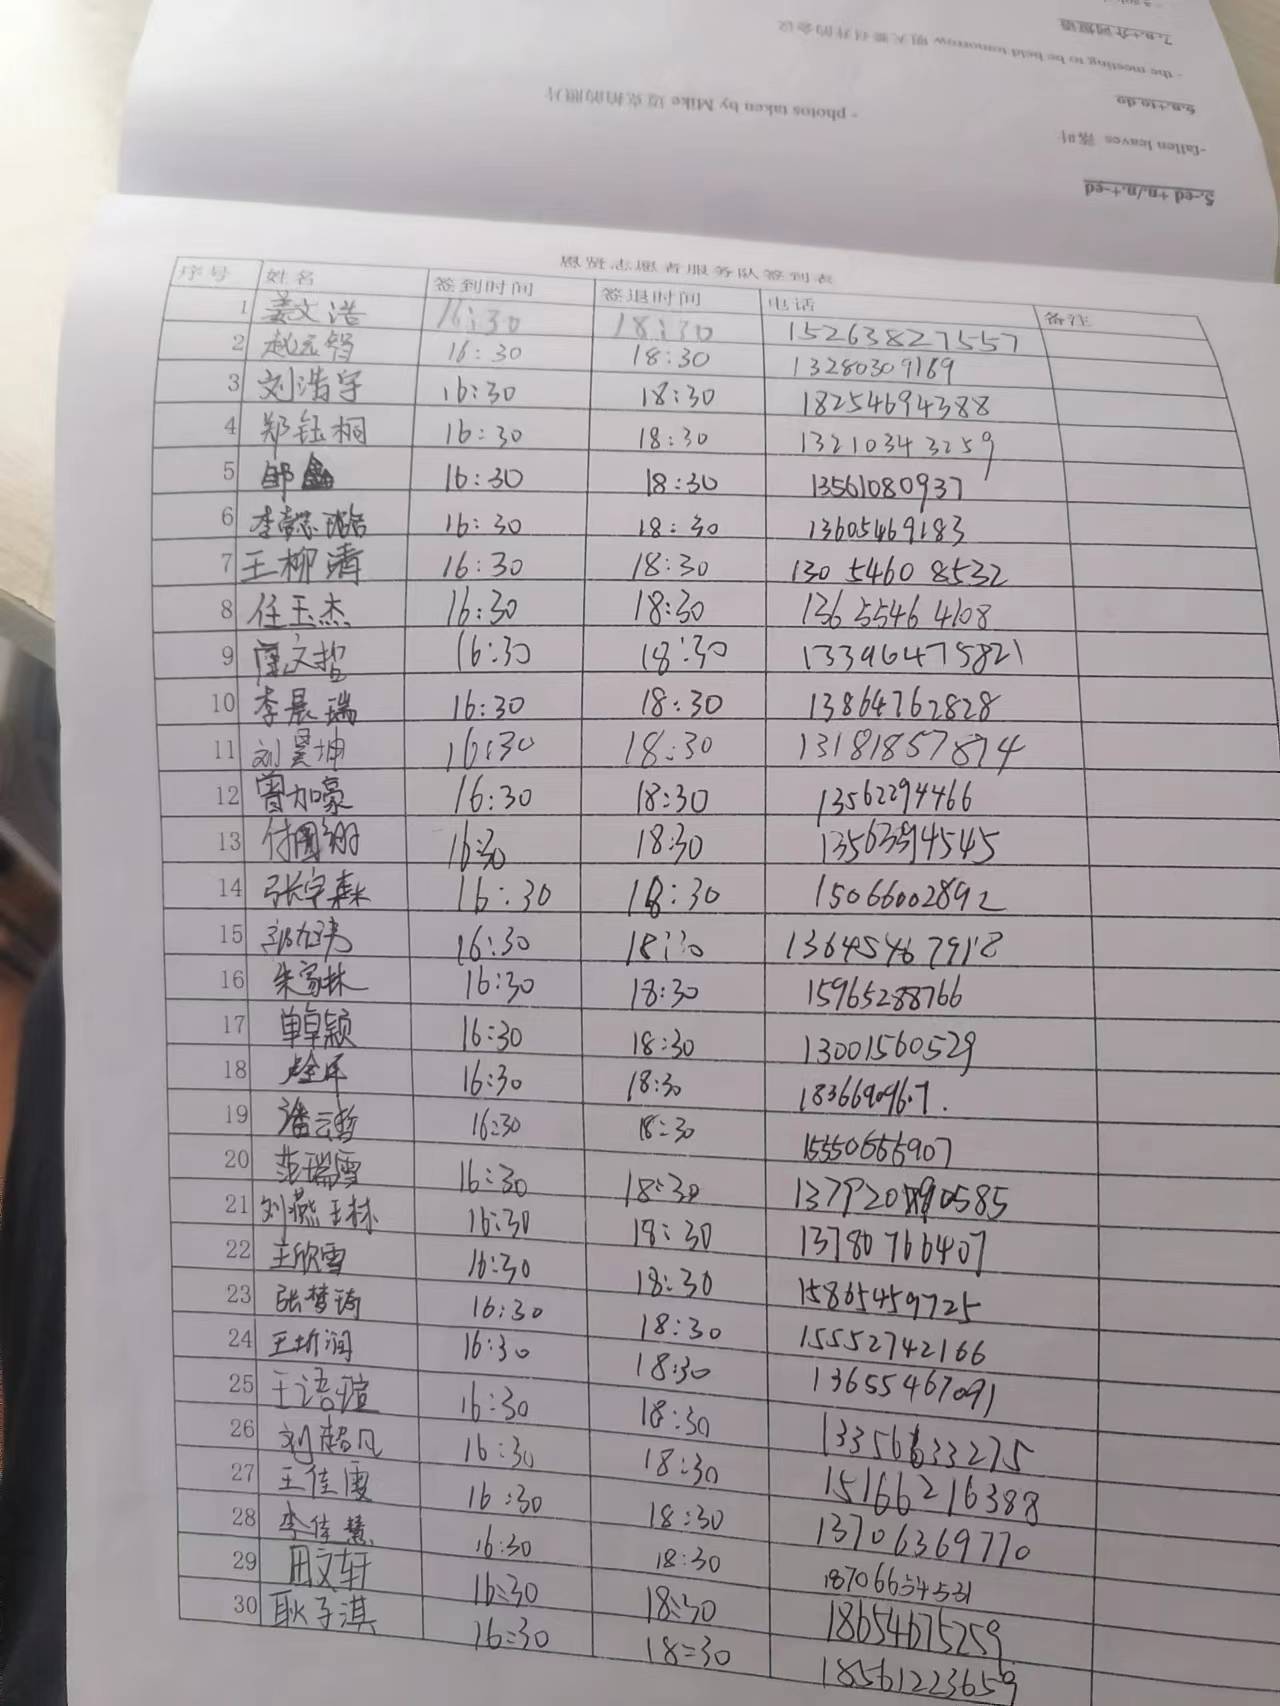 7.n.+介词短语
- the meeting to be held tomorrow 明天要召开的会议
6.n.+to do
- photos taken by Mike 迈克拍的照片
-fallen leaves 落叶
5.-ed +n./n.+-ed
恩贤志愿者服务队签到表
序号 姓名 签到时间 签退时间 电话 备注
1 姜文浩 16:30 18:30 15263827557
2 赵元智 16:30 18:30 13280309169
3 刘浩宇 16:30 18:30 18254694388
4 郑钰桐 16:30 18:30 13210343259
5 邹鑫 16:30 18:30 13561080937
6 李懿璐 16:30 18:30 13605469183
7 王柳清 16:30 18:30 13054608532
8 任玉杰 16:30 18:30 13655464108
9 文哲 16:30 18:30 13396475821
10 李晨瑞 16:30 18:30 13864762828
11 刘昊坤 16:30 18:30 13181857874
12 曾加豪 16:30 18:30 13562294466
13 付国翔 16:30 18:30 13563394545
14 张宇森 16:30 18:30 15066002892
15 16:30 18:30 13645467912
16 朱家林 16:30 18:30 15965288766
17 单卓颖 16:30 18:30 13001560529
18 16:30 18:30
19 潘云哲 16:30 18:30 15550666907
20 范瑞雪 16:30 18:30
21 刘燕林 16:30 18:30 13780766407
22 王欣雪 16:30 18:30 15865459725
23 张梦琦 16:30 18:30 15552742166
24 王圻润 16:30 18:30 13655467091
25 王语煊 16:30 18:30 13356633275
26 刘超凡 16:30 18:30 15166216388
27 王佳雯 16:30 18:30 13706369770
28 李佳慧 16:30 18:30 18706654531
29 田文轩 16:30 18:30 18654675259
30 耿子淇 16:30 18:30 18561223659